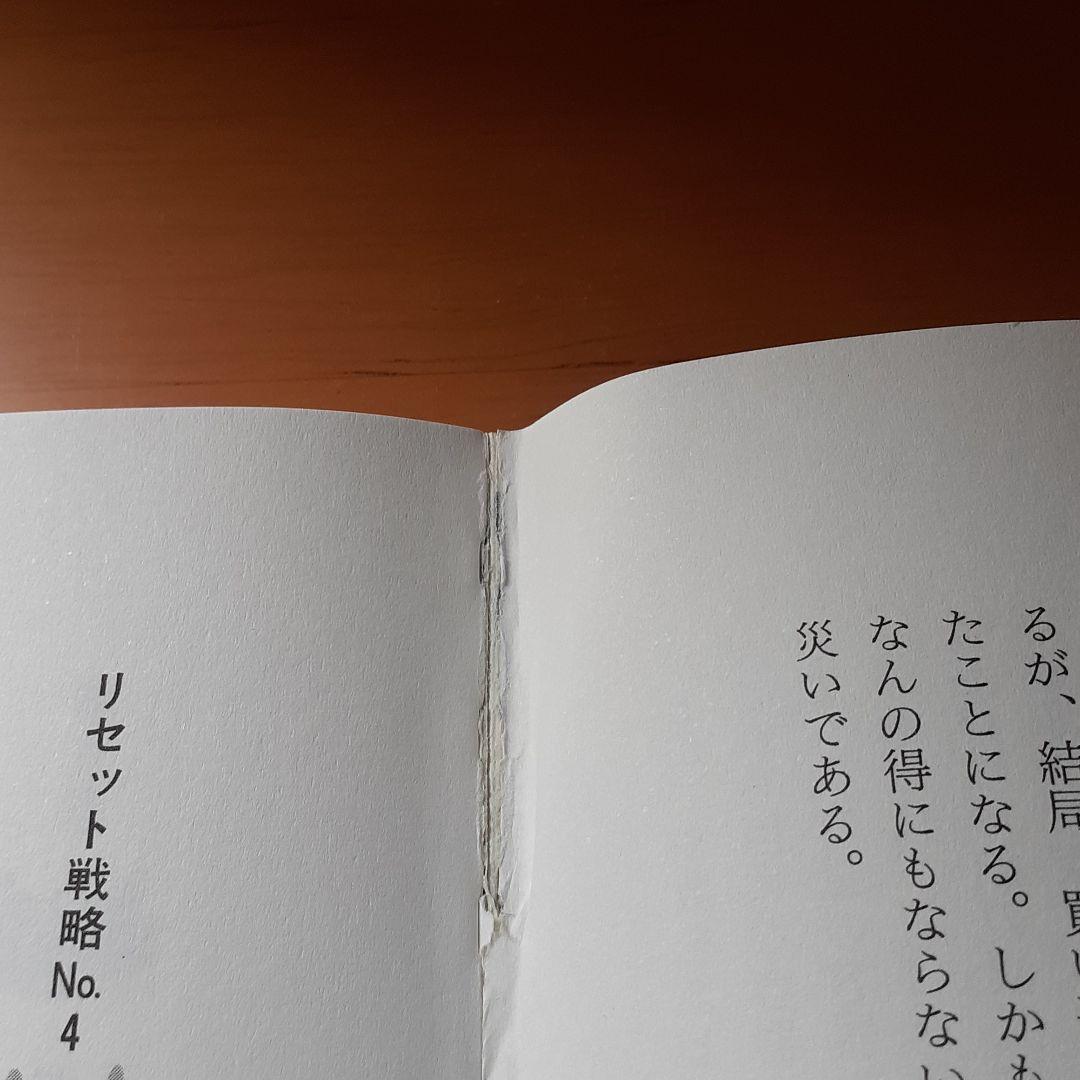 るが、結局、買い
たことになる。しかも
なんの得にもならない
災いである。
リセット戦略No.4